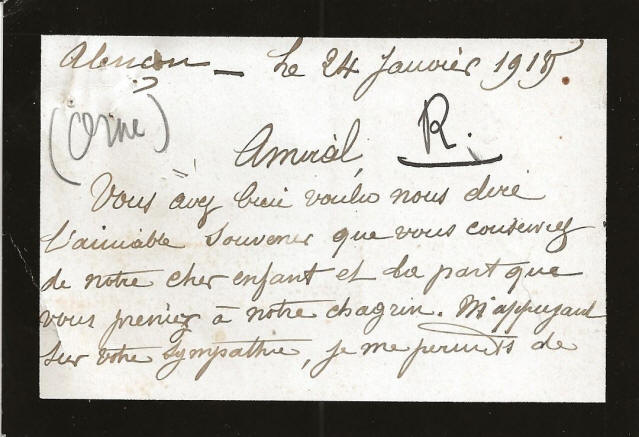 Alençon — Le 24 Janvier 1915
(Orne)
R.
Amiral,
Vous avez bien voulu nous dire
l'aimable souvenir que vous conservez
de notre cher enfant et la part que
vous preniez à notre chagrin. M'appuyant
sur votre sympathie, je me permets de